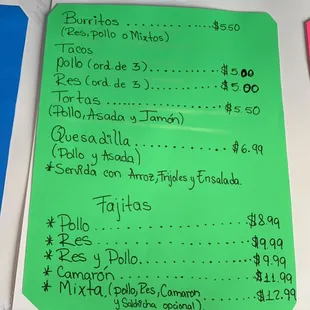 Burritos ............ $5.50
(Res, pollo o Mixtos)
Tacos
pollo (ord. de 3) ............ $5.00
Res (ord. de 3) ............ $5.00
Tortas ................ $5.50
(Pollo, Asada y Jamón)
Quesadilla ............ $6.99
(Pollo y Asada)
*Servida con Arroz, Frijoles y Ensalada
Fajitas
* Pollo ................ $8.99
* Res ................ $9.99
* Res y Pollo ............ $9.99
* Camarón ............ $11.99
* Mixta (pollo, Res, Camaron ..... $12.99
y Salchicha opcional)